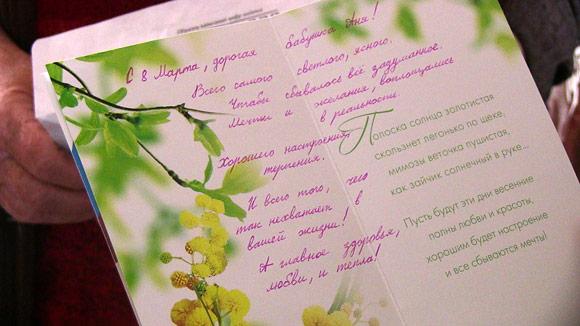 С 8 Марта, дорогая бабушка Аня!
Всего самого светлого, ясного.
Чтобы сбывалось всё задуманное.
Мечты и желания, воплощались
в реальности.
Хорошего настроения,
терпения.
И всего того, чего
так нехватает в
вашей жизни!
А главное здоровья,
любви, и тепла!
Полоска солнца золотистая
скользнет легонько по щеке,
мимозы веточка пушистая,
как зайчик солнечный в руке...
Пусть будут эти дни весенние
полны любви и красоты,
хорошим будет настроение
и все сбываются мечты!